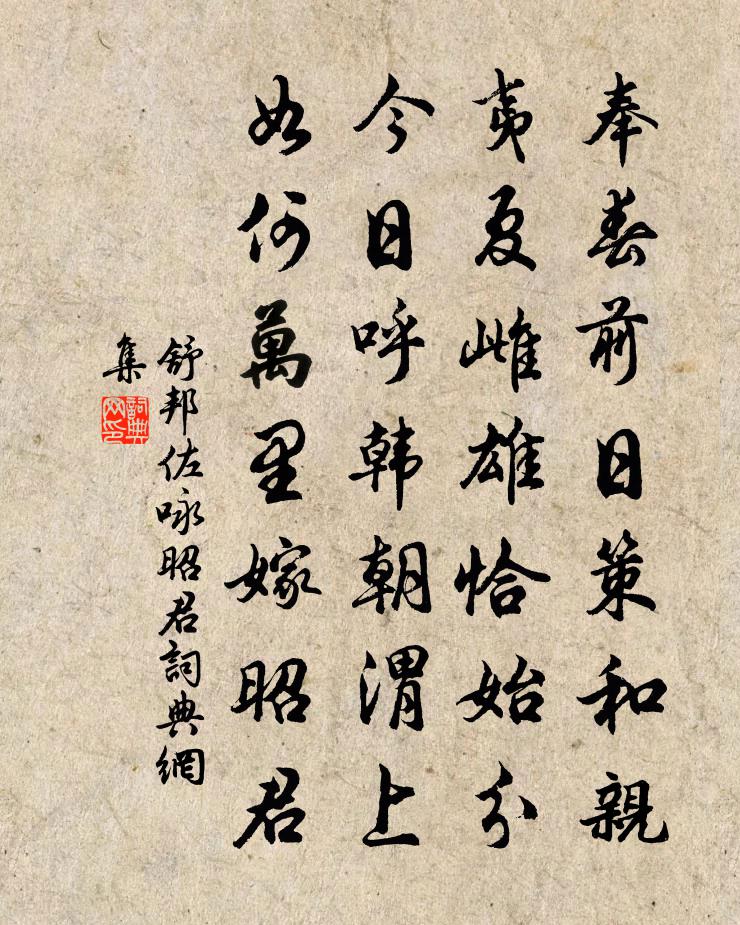 奉春前日策和親
夷夏雌雄恰始分
今日呼韩朝渭上
如何萬里嫁昭君
舒邦佐咏昭君詞典網
集
詞典
网印